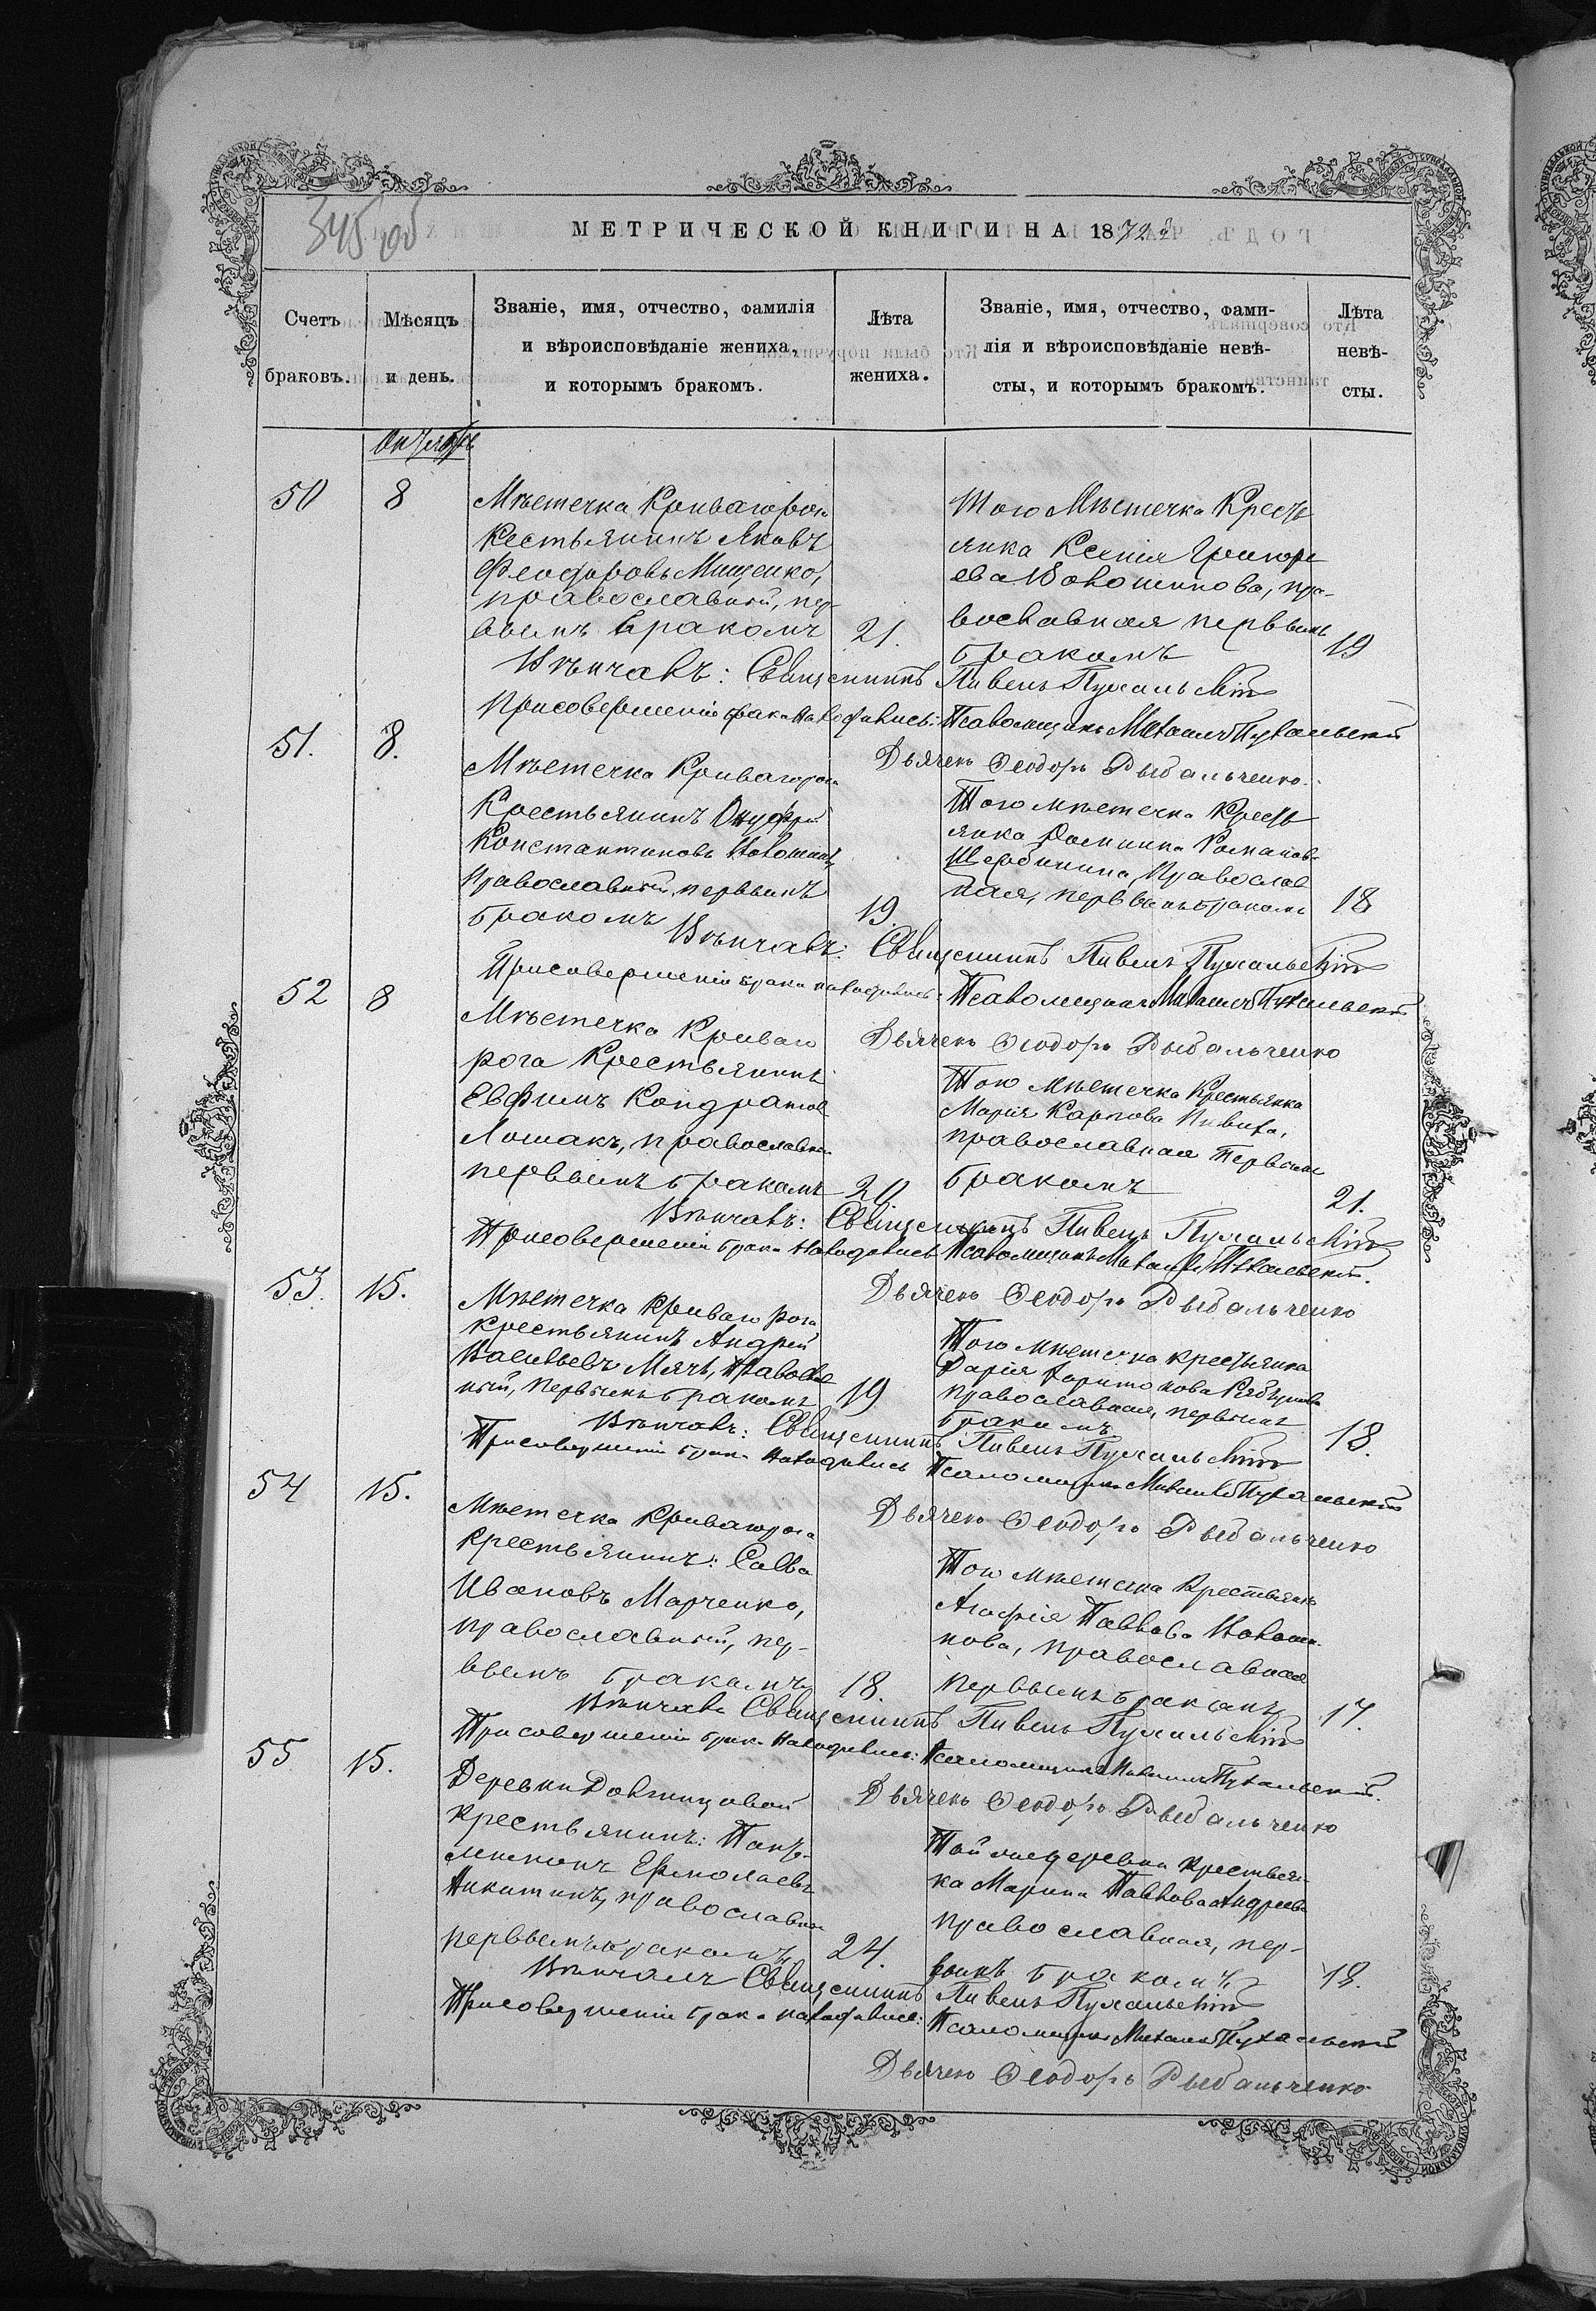 345 об
МЕТРИЧЕСКОЙ КНИГИ НА 1872й
Счетъ браковъ.
Мѣсяцъ и день.
Званіе, имя, отчество, фамилія
и вѣроисповѣданіе жениха,
и которымъ бракомъ.
Лѣта
жениха.
Званіе, имя, отчество, фами-
лія и вѣроисповѣданіе невѣ-
сты, и которымъ бракомъ.
Лѣта
невѣ-
сты.
Октябрь
50 8
Мѣстечка Кривагорога
Кестьянинъ Яковъ
Феодоровъ Мищенко,
православный, пер-
вымъ бракомъ 21.
Того Мѣстечка Кресть
янка Ксенія Григорь
ева Волошинова, пра-
вославная первымъ
бракомъ 19
Вѣнчалъ: Священникъ
При совершеніи брака находились: Псаломщикъ Михаилъ
Дьячекъ Ѳеодоръ Рыбальченко.
51. 8.
Мѣстечка Кривагорога
Крестьянинъ Онуфрій
Константиновъ
Православный, первымъ
бракомъ 19.
Того мѣстечка Кресть
янка Домника Романов
Щербинина, Православ
ная, первымъ бракомъ 18
Вѣнчалъ: Священникъ
При совершеніи брака находились: Псаломщикъ Михаилъ
Дьячекъ Ѳеодоръ Рыбальченко
52 8
Мѣстечка Криваго
рога Крестьянинъ
Евфимъ Кондратов
Лошакъ, православный
первымъ бракомъ 20
Того мѣстечка Крестьянка
Марія Карпова
православная Первымъ
бракомъ 21.
Вѣнчалъ: Священникъ
При совершеніи брака находились Псаломщикъ Михаилъ
Дьячекъ Ѳеодоръ Рыбальченко
53. 15.
Мѣстечка Криваго рога
крестьянинъ Андрей
Васильевъ Мячъ, Православ
ный, Первымъ бракомъ 19
Того мѣстечка крестьянка
Дарія Харитонова
православная, первымъ
бракомъ 18.
Вѣнчалъ: Священникъ
При совершеніи брака находились Псаломщикъ Михаилъ
Дьячекъ Ѳеодоръ Рыбальченко
54 15.
Мѣстечка Кривагорога
крестьянинъ: Савва
Ивановъ Марченко,
православный, пер-
вымъ бракомъ 18.
Того мѣстечка Крестьянка
Агафія Павлова Волоши
нова, православная
первымъ бракомъ 17.
Вѣнчалъ Священникъ
При совершеніи брака находились: Псаломщикъ Михаилъ
Дьячекъ Ѳеодоръ Рыбальченко
55 15.
Деревни Довгинцовой
крестьянинъ: Панте-
леимонъ Ермолаевъ
Никитинъ, православный
первымъ бракомъ 24.
Той же деревни крестьян-
ка Марина Павлова Андреева
православная, пер-
вымъ бракомъ 18.
Вѣнчалъ Священникъ
При совершеніи брака находились: Псаломщикъ Михаилъ
Дьячекъ Ѳеодоръ Рыбальченко